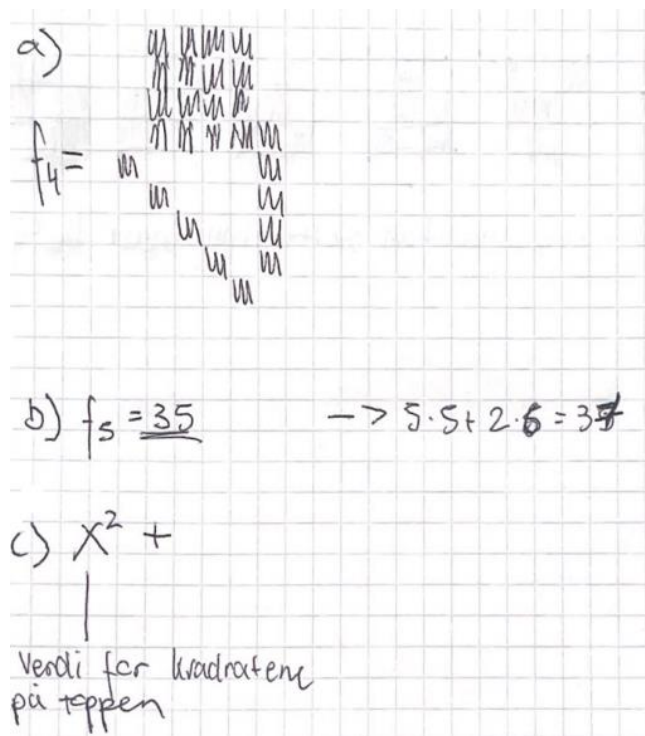 a)
f₄ =
b) f₅ = 35 -> 5·5+2·6=37
c) x² +
Verdi for kvadratene
på toppen